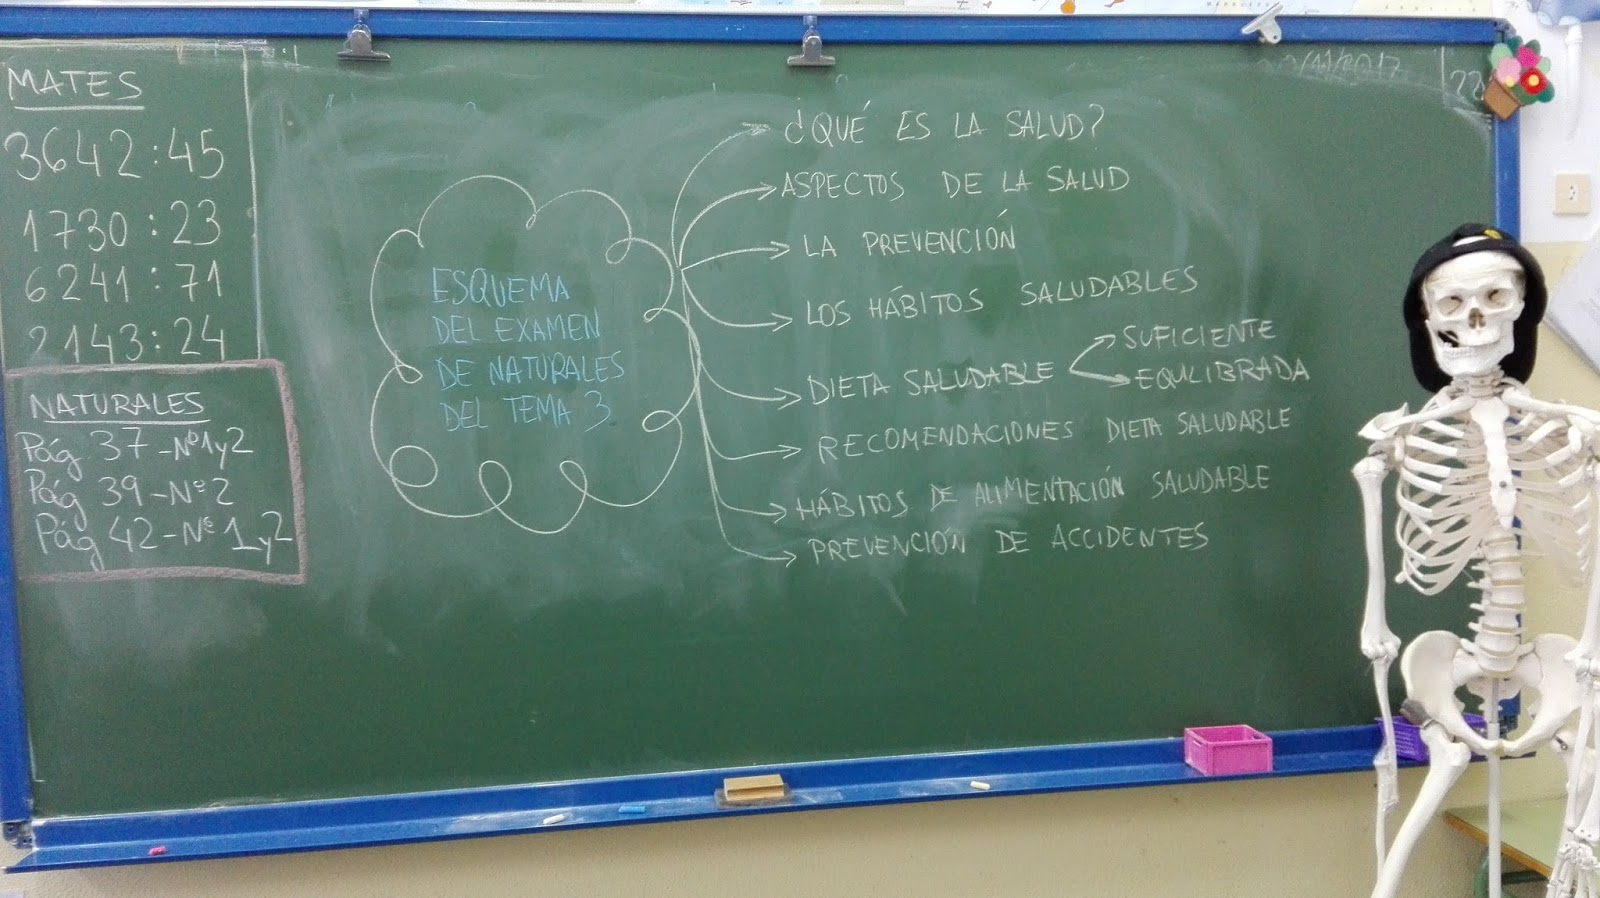 MATES
3642:45
1730:23
6241:71
2143:24
NATURALES
Pág 37-Nº1y2
Pág 39-Nº2
Pág 42-Nº1y2
ESQUEMA
DEL EXAMEN
DE NATURALES
DEL TEMA 3
¿QUÉ ES LA SALUD?
ASPECTOS DE LA SALUD
LA PREVENCIÓN
LOS HÁBITOS SALUDABLES
DIETA SALUDABLE
SUFICIENTE
EQUILIBRADA
RECOMENDACIONES DIETA SALUDABLE
HÁBITOS DE ALIMENTACIÓN SALUDABLE
PREVENCIÓN DE ACCIDENTES
/11/2017
22